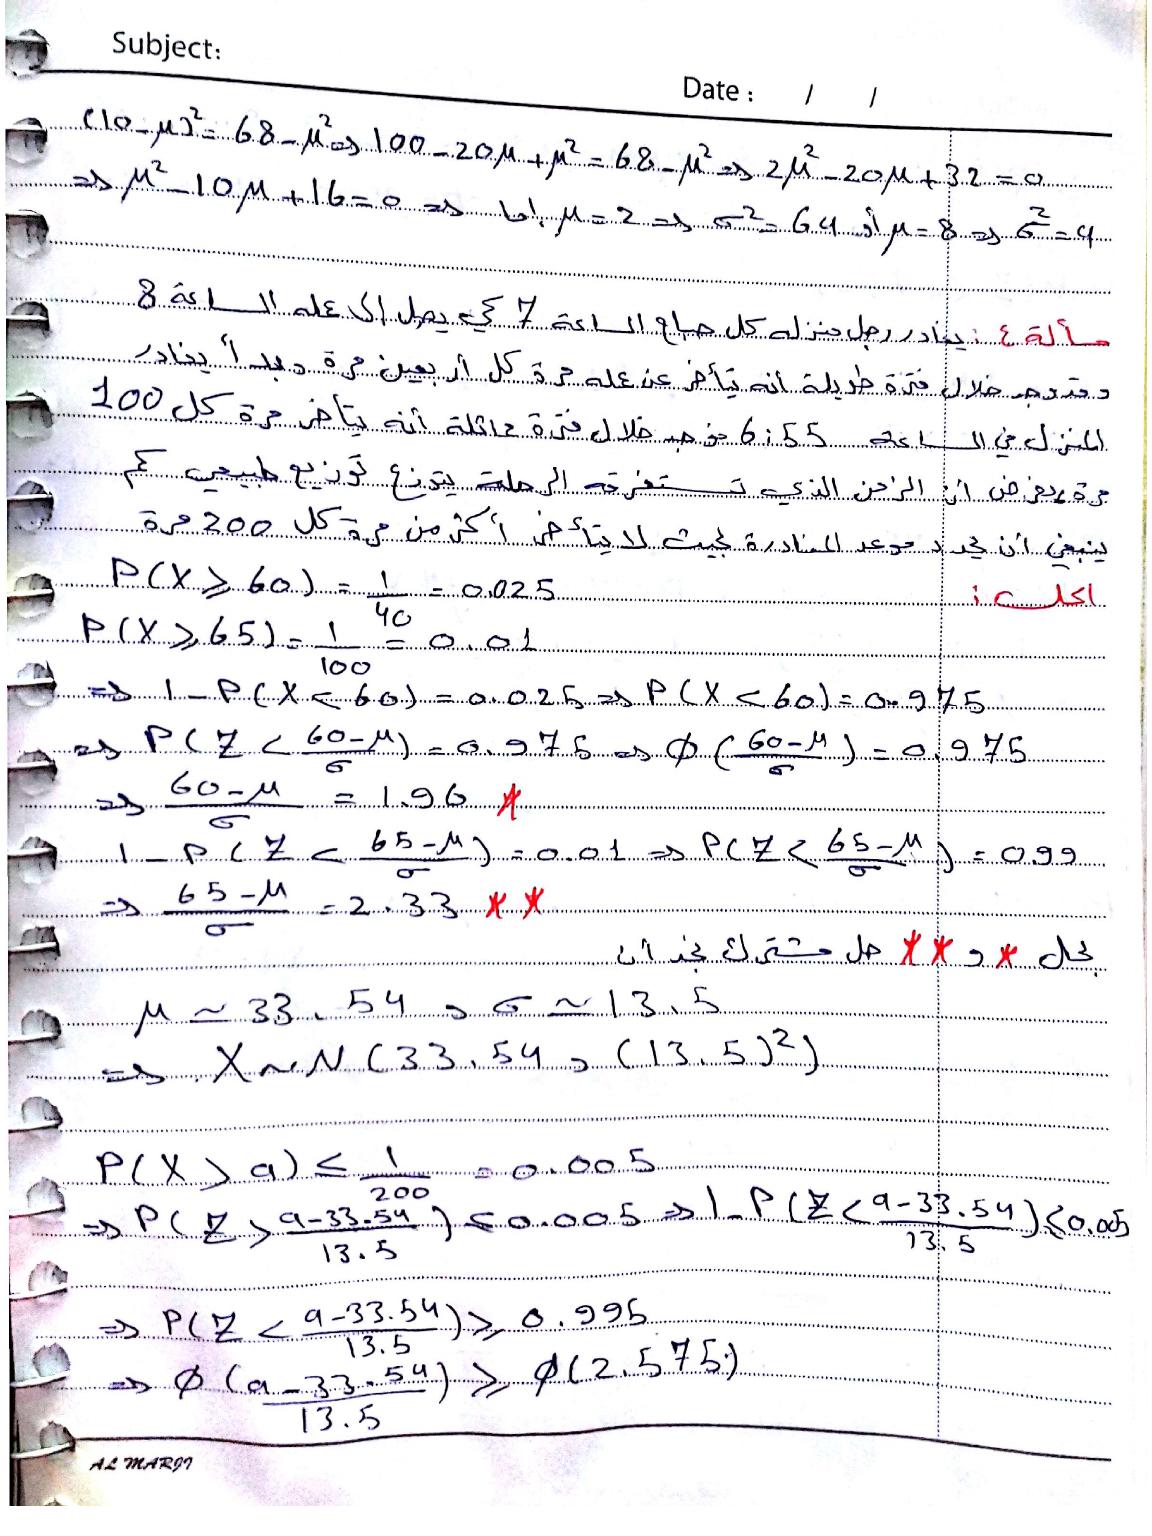 Subject:
Date : / /
(10-μ)² = 68-μ² ⇒ 100-20μ+μ² = 68-μ² ⇒ 2μ²-20μ+32=0
⇒ μ²-10μ+16=0 ⇒ إما μ=2 ⇒ σ²=64 أو μ=8 ⇒ σ²=4
مسألة ٤ : يغادر رجل منزله كل صباح الساعة 7 كي يصل إلى عمله الساعة 8
وقد وجد خلال فترة طويلة أنه يتأخر عن عمله مرة كل أربعين مرة وبعد أن يغادر
المنزل في الساعة 6:55 فوجد خلال فترة مماثلة أنه يتأخر مرة كل 100
مرة بفرض أن الزمن الذي تستغرقه الرحلة يتوزع توزيع طبيعي كم
ينبغي أن يحدد موعد المغادرة بحيث لا يتأخر أكثر من مرة كل 200 مرة
الحل :
P(X ≥ 60) = 1/40 = 0.025
P(X ≥ 65) = 1/100 = 0.01
⇒ 1-P(X < 60) = 0.025 ⇒ P(X < 60) = 0.975
⇒ P(Z < (60-μ)/σ) = 0.975 ⇒ φ((60-μ)/σ) = 0.975
⇒ (60-μ)/σ = 1.96 *
1-P(Z < (65-μ)/σ) = 0.01 ⇒ P(Z < (65-μ)/σ) = 0.99
⇒ (65-μ)/σ = 2.33 **
بحل * و ** حل مشترك نجد أن
μ ≃ 33.54 , σ ≃ 13.5
⇒ X ~ N(33.54 , (13.5)²)
P(X > a) ≤ 1/200 = 0.005
⇒ P(Z > (a-33.54)/13.5) ≤ 0.005 ⇒ 1-P(Z < (a-33.54)/13.5) ≤ 0.005
⇒ P(Z < (a-33.54)/13.5) ≥ 0.995
⇒ φ((a-33.54)/13.5) ≥ φ(2.575)
AL MARJI